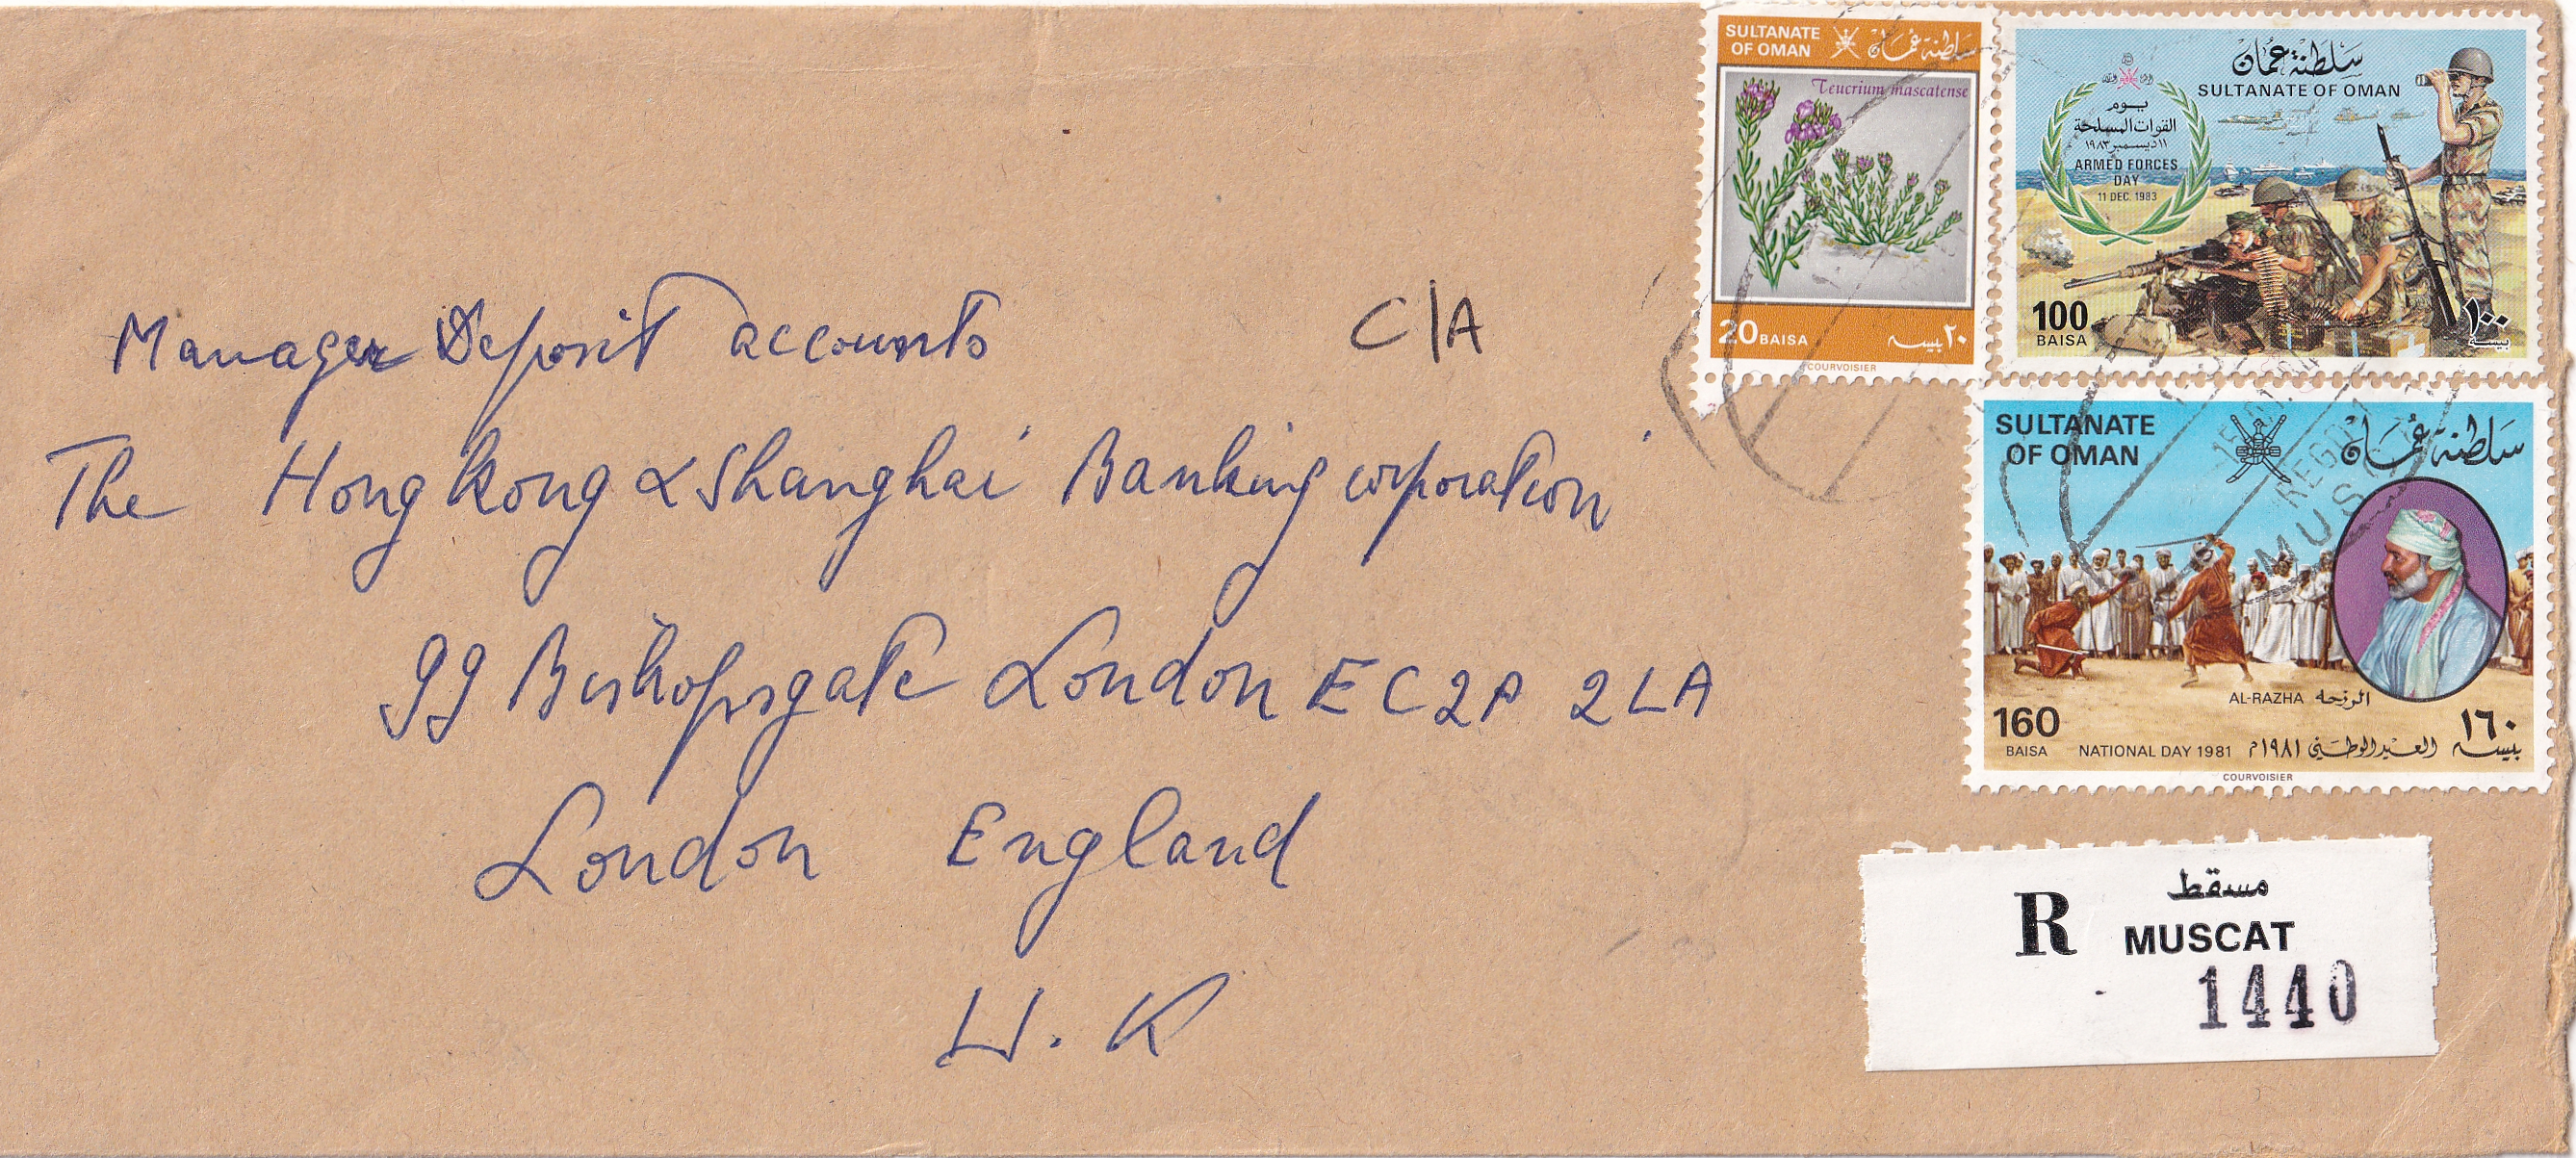 Manager Deposit accounts
C/A
The Hongkong & Shanghai Banking corporation
99 Bishopsgate London EC2P 2LA
London England
U.K
SULTANATE
OF OMAN
سلطنة عمان
Teucrium mascatense
20 BAISA
٢٠ بيسه
COURVOISIER
سلطنة عمان
SULTANATE OF OMAN
يوم
القوات المسلحة
١١ ديسمبر ١٩٨٣
ARMED FORCES
DAY
11 DEC. 1983
100
BAISA
١٠٠
بيسه
SULTANATE
OF OMAN
سلطنة عمان
AL-RAZHA الرزحه
160
BAISA
NATIONAL DAY 1981
العيد الوطني ١٩٨١م
١٦٠
بيسه
COURVOISIER
R
مسقط
MUSCAT
1440